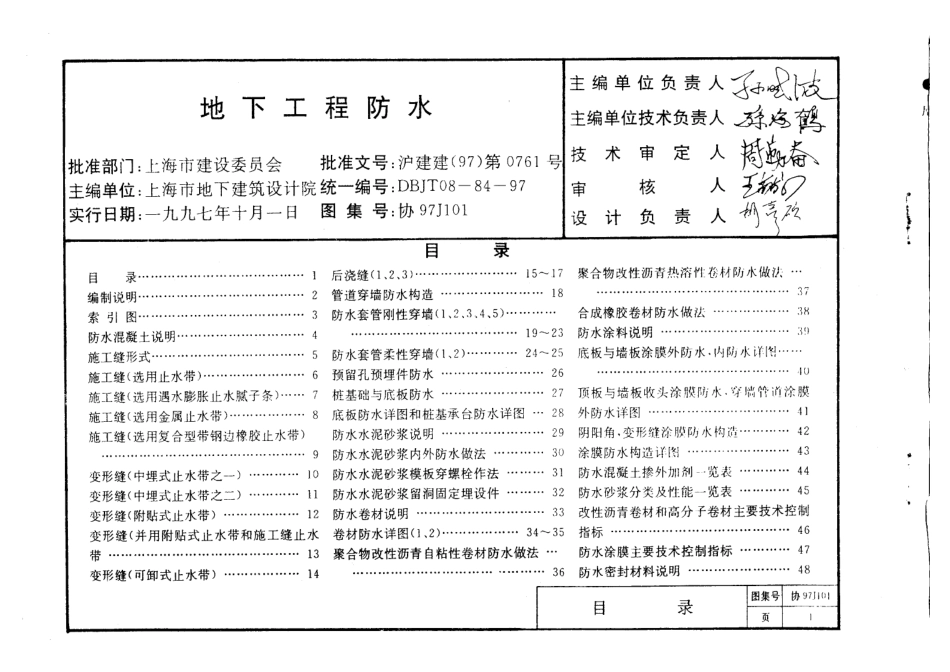 地下工程防水
批准部门:上海市建设委员会 批准文号:沪建建(97)第0761号
主编单位:上海市地下建筑设计院 统一编号:DBJT08-84-97
实行日期:一九九七年十月一日 图集号:协97J101
主编单位负责人
主编单位技术负责人
技术审定人
审核人
设计负责人
目 录
目 录……………………………… 1
编制说明……………………………… 2
索引图……………………………… 3
防水混凝土说明……………………… 4
施工缝形式…………………………… 5
施工缝(选用止水带)………………… 6
施工缝(选用遇水膨胀止水腻子条)…… 7
施工缝(选用金属止水带)…………… 8
施工缝(选用复合型带钢边橡胶止水带)
……………………………………… 9
变形缝(中埋式止水带之一)………… 10
变形缝(中埋式止水带之二)………… 11
变形缝(附贴式止水带)……………… 12
变形缝(并用附贴式止水带和施工缝止水
带……………………………………… 13
变形缝(可卸式止水带)……………… 14
后浇缝(1、2、3)………………… 15～17
管道穿墙防水构造………………… 18
防水套管刚性穿墙(1、2、3、4、5)…………
……………………………… 19～23
防水套管柔性穿墙(1、2)………… 24～25
预留孔预埋件防水………………… 26
桩基础与底板防水………………… 27
底板防水详图和桩基承台防水详图… 28
防水水泥砂浆说明………………… 29
防水水泥砂浆内外防水做法……… 30
防水水泥砂浆模板穿螺栓作法…… 31
防水水泥砂浆留洞固定埋设件…… 32
防水卷材说明……………………… 33
卷材防水详图(1、2)…………… 34～35
聚合物改性沥青自粘性卷材防水做法…
……………………………………… 36
聚合物改性沥青热溶性卷材防水做法…
……………………………………… 37
合成橡胶卷材防水做法…………… 38
防水涂料说明……………………… 39
底板与墙板涂膜外防水、内防水详图……
……………………………………… 40
顶板与墙板收头涂膜防水、穿墙管道涂膜
外防水详图………………………… 41
阴阳角、变形缝涂膜防水构造……… 42
涂膜防水构造详图………………… 43
防水混凝土掺外加剂一览表……… 44
防水砂浆分类及性能一览表……… 45
改性沥青卷材和高分子卷材主要技术控制
指标………………………………… 46
防水涂膜主要技术控制指标……… 47
防水密封材料说明………………… 48
目 录
图集号 协97J101
页 1